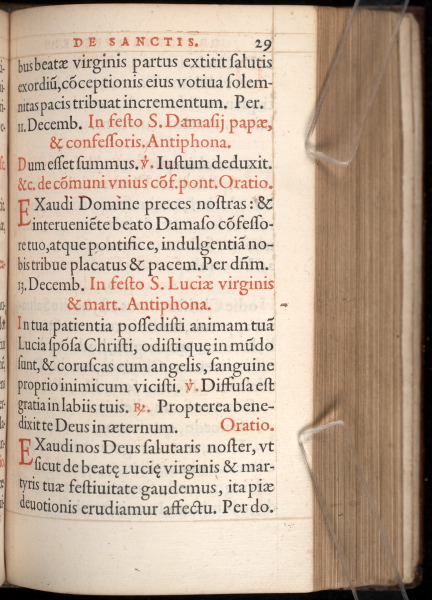 DE SANCTIS. 29
bus beatæ virginis partus extitit salutis
exordiũ, cõceptionis eius votiua solem-
nitas pacis tribuat incrementum. Per.
11. Decemb. In festo S. Damasij papæ,
& confessoris. Antiphona.
Dum esset summus. ℣. Iustum deduxit.
&c. de cõmuni vnius cõf. pont. Oratio.
EXaudi Domine preces nostras: &
interueniẽte beato Damaso cõfesso-
re tuo, atque pontifice, indulgentiã no-
bis tribue placatus & pacem. Per dñm.
13. Decemb. In festo S. Luciæ virginis
& mart. Antiphona.
In tua patientia possedisti animam tuã
Lucia spõsa Christi, odisti quę in mũdo
sunt, & coruscas cum angelis, sanguine
proprio inimicum vicisti. ℣. Diffusa est
gratia in labiis tuis. ℟. Propterea bene-
dixit te Deus in æternum. Oratio.
EXaudi nos Deus salutaris noster, vt
sicut de beatę Lucię virginis & mar-
tyris tuæ festiuitate gaudemus, ita piæ
deuotionis erudiamur affectu. Per do.